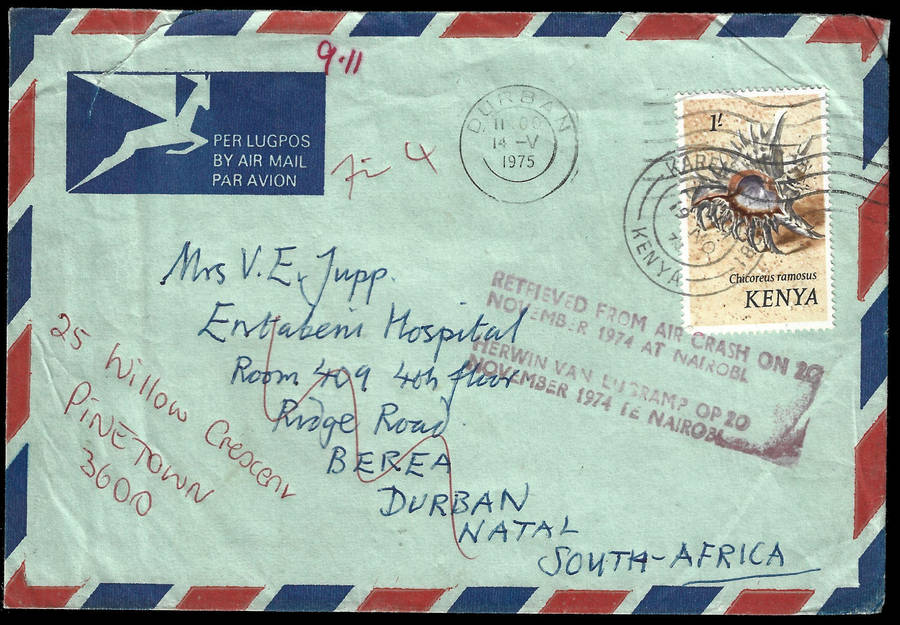 9.11
PER LUGPOS
BY AIR MAIL
PAR AVION
DURBAN
14 -V
1975
1/-
KENYA
Chicoreus ramosus
KENYA
Mrs V. E. Jupp.
Entabeni Hospital
Room 409 4th floor
Ridge Road
BEREA
DURBAN
NATAL
SOUTH-AFRICA
25 Willow Crescent
PINETOWN
3600
RETRIEVED FROM AIR CRASH ON 20
NOVEMBER 1974 AT NAIROBI.
HERWIN VAN LUGRAMP OP 20
NOVEMBER 1974 TE NAIROBI.